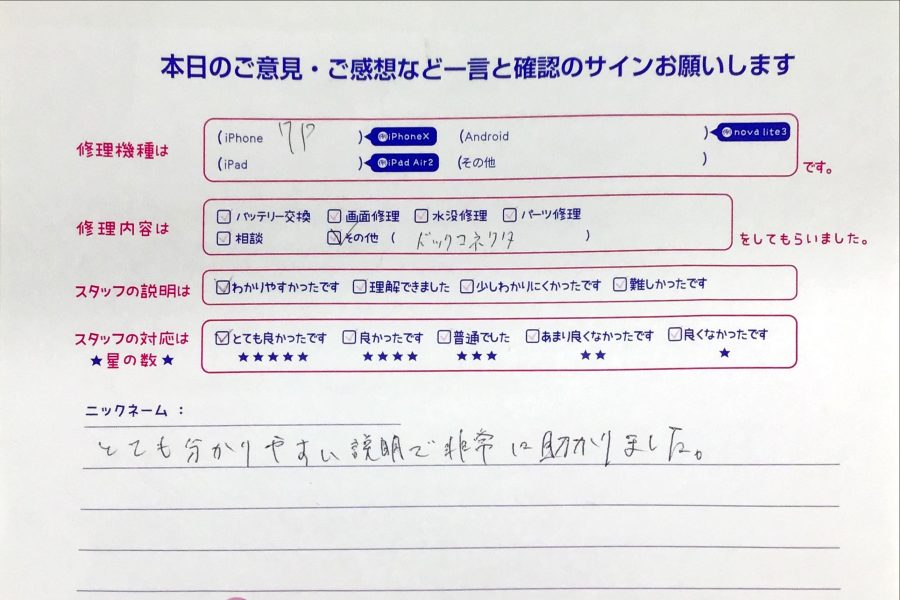 本日のご意見・ご感想など一言と確認のサインお願いします
修理機種は
(iPhone 7P ) 例iPhoneX (Android ) 例nova lite3
(iPad ) 例iPad Air2 (その他 )
です。
修理内容は
バッテリー交換 画面修理 水没修理 パーツ修理
相談 その他 ( ドックコネクタ )
をしてもらいました。
スタッフの説明は わかりやすかったです 理解できました 少しわかりにくかったです 難しかったです
スタッフの対応は とても良かったです 良かったです 普通でした あまり良くなかったです 良くなかったです
★星の数★ ★★★★★ ★★★★ ★★★ ★★ ★
ニックネーム：
とても分かりやすい説明で非常に助かりました。